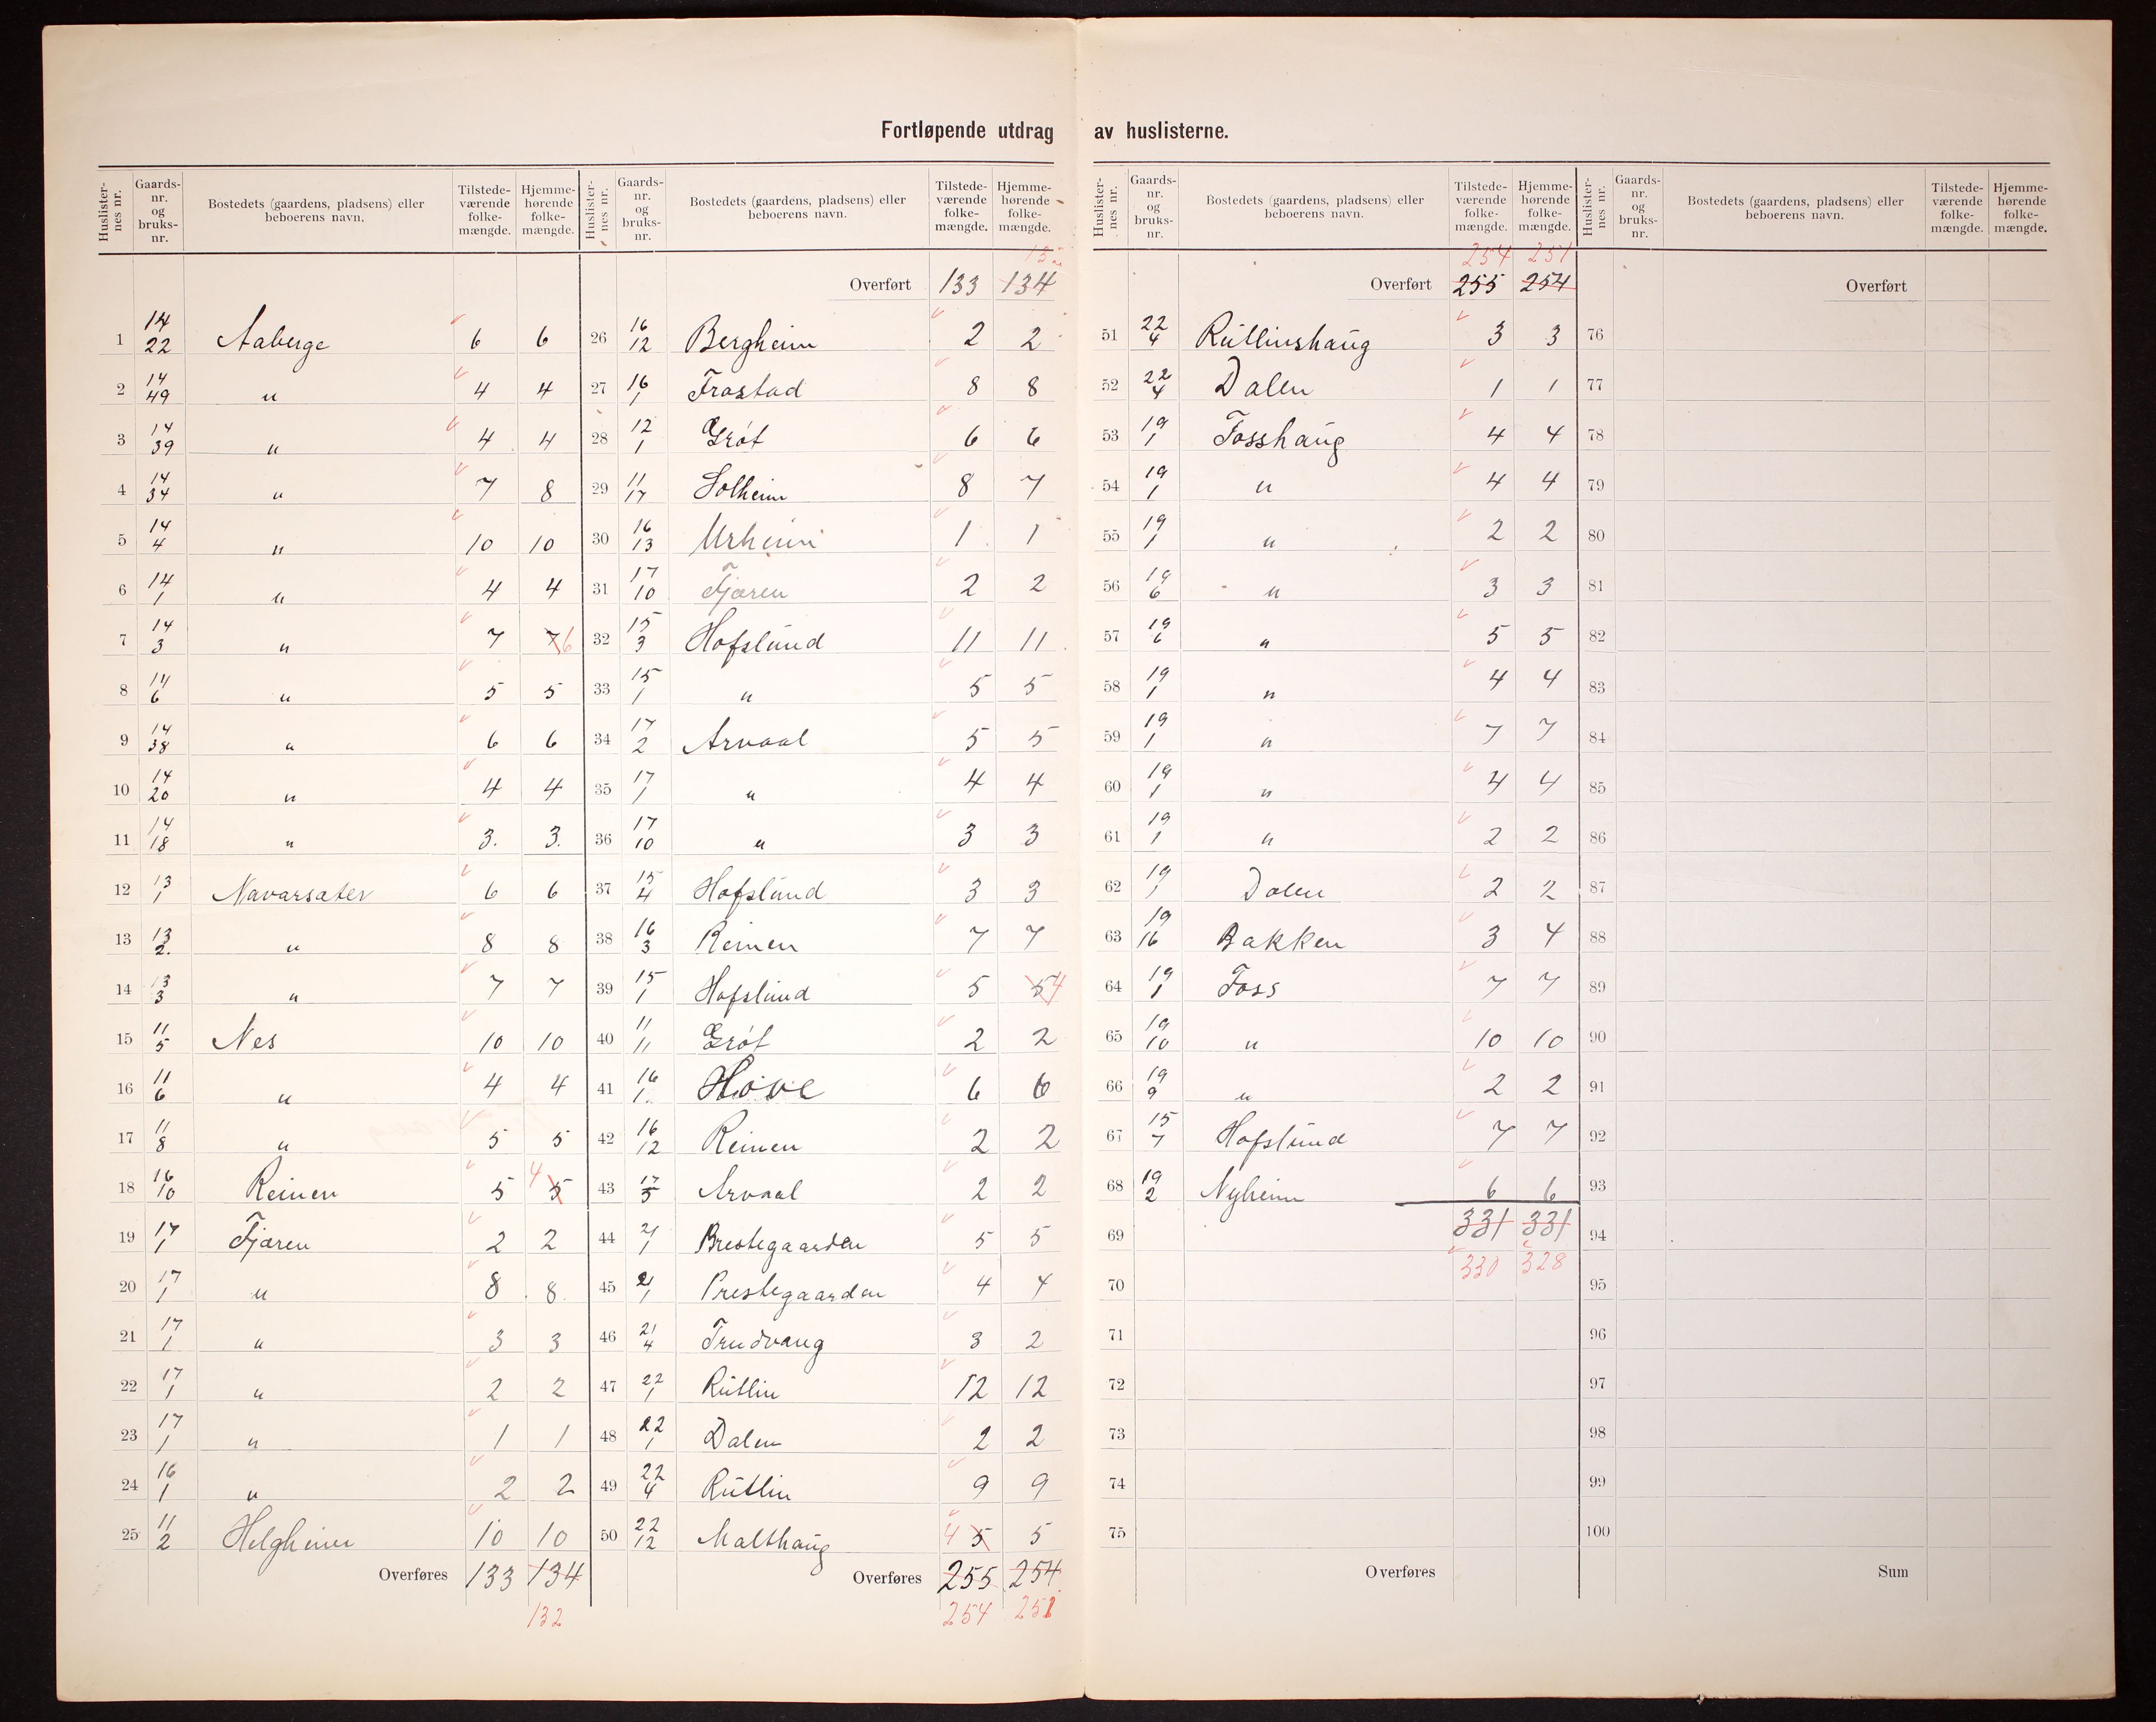 Fortløpende utdrag av huslisterne.
Huslisternes nr. | Gaardsnr. og bruksnr. | Bostedets (gaardens, pladsens) eller beboerens navn. | Tilstedeværende folkemængde. | Hjemmehørende folkemængde.
1 14/22 Aaberge 6 6
2 14/49 " 4 4
3 14/39 " 4 4
4 14/34 " 7 8
5 14/4 " 10 10
6 14/1 " 4 4
7 14/3 " 7 7 6
8 14/6 " 5 5
9 14/38 " 6 6
10 14/20 " 4 4
11 14/18 " 3. 3.
12 13/1 Navarsater 6 6
13 13/2. " 8 8
14 13/3 " 7 7
15 11/5 Nes 10 10
16 11/6 " 4 4
17 11/8 " 5 5
18 16/10 Reinen 5 4 5
19 17/1 Fjæren 2 2
20 17/1 " 8 8
21 17/1 " 3 3
22 17/1 " 2 2
23 17/1 " 1 1
24 16/1 " 2 2
25 11/2 Helgheim 10 10
Overføres 133 134
132
Huslisternes nr. | Gaardsnr. og bruksnr. | Bostedets (gaardens, pladsens) eller beboerens navn. | Tilstedeværende folkemængde. | Hjemmehørende folkemængde.
132
Overført 133 134
26 16/12 Bergheim 2 2
27 16/1 Frastad 8 8
28 12/1 Grøt 6 6
29 11/17 Solheim 8 7
30 16/13 Urheim 1 1
31 17/10 Fjæren 2 2
32 15/3 Hofslund 11 11
33 15/1 " 5 5
34 17/2 Arvaal 5 5
35 17/1 " 4 4
36 17/10 " 3 3
37 15/4 Hofslund 3 3
38 16/3 Reinen 7 7
39 15/1 Hofslund 5 5 4
40 11/11 Grøt 2 2
41 16/1. Hove 6 6
42 16/12 Reinen 2 2
43 17/5 Arvaal 2 2
44 21/1 Prestegaarden 5 5
45 21/1 Prestegaarden 4 4
46 21/4 Trudvang 3 2
47 22/1 Rutlin 12 12
48 22/1 Dalen 2 2
49 22/4 Rutlin 9 9
50 22/12 Malthaug 4 5 5
Overføres 255 254
254 251
Huslisternes nr. | Gaardsnr. og bruksnr. | Bostedets (gaardens, pladsens) eller beboerens navn. | Tilstedeværende folkemængde. | Hjemmehørende folkemængde.
254 251
Overført 255 254
51 22/4 Rutlinshaug 3 3
52 22/4 Dalen 1 1
53 19/1 Fosshaug 4 4
54 19/1 " 4 4
55 19/1 " 2 2
56 19/6 " 3 3
57 19/6 " 5 5
58 19/1 " 4 4
59 19/1 " 7 7
60 19/1 " 4 4
61 19/1 " 2 2
62 19/1 Dalen 2 2
63 19/16 Bakken 3 4
64 19/1 Foss 7 7
65 19/10 " 10 10
66 19/9 " 2 2
67 15/7 Hofslund 7 7
68 19/2 Nyheim 6 6
69 331 331
330 328
70
71
72
73
74
75
Overføres
Huslisternes nr. | Gaardsnr. og bruksnr. | Bostedets (gaardens, pladsens) eller beboerens navn. | Tilstedeværende folkemængde. | Hjemmehørende folkemængde.
Overført
76
77
78
79
80
81
82
83
84
85
86
87
88
89
90
91
92
93
94
95
96
97
98
99
100
Sum